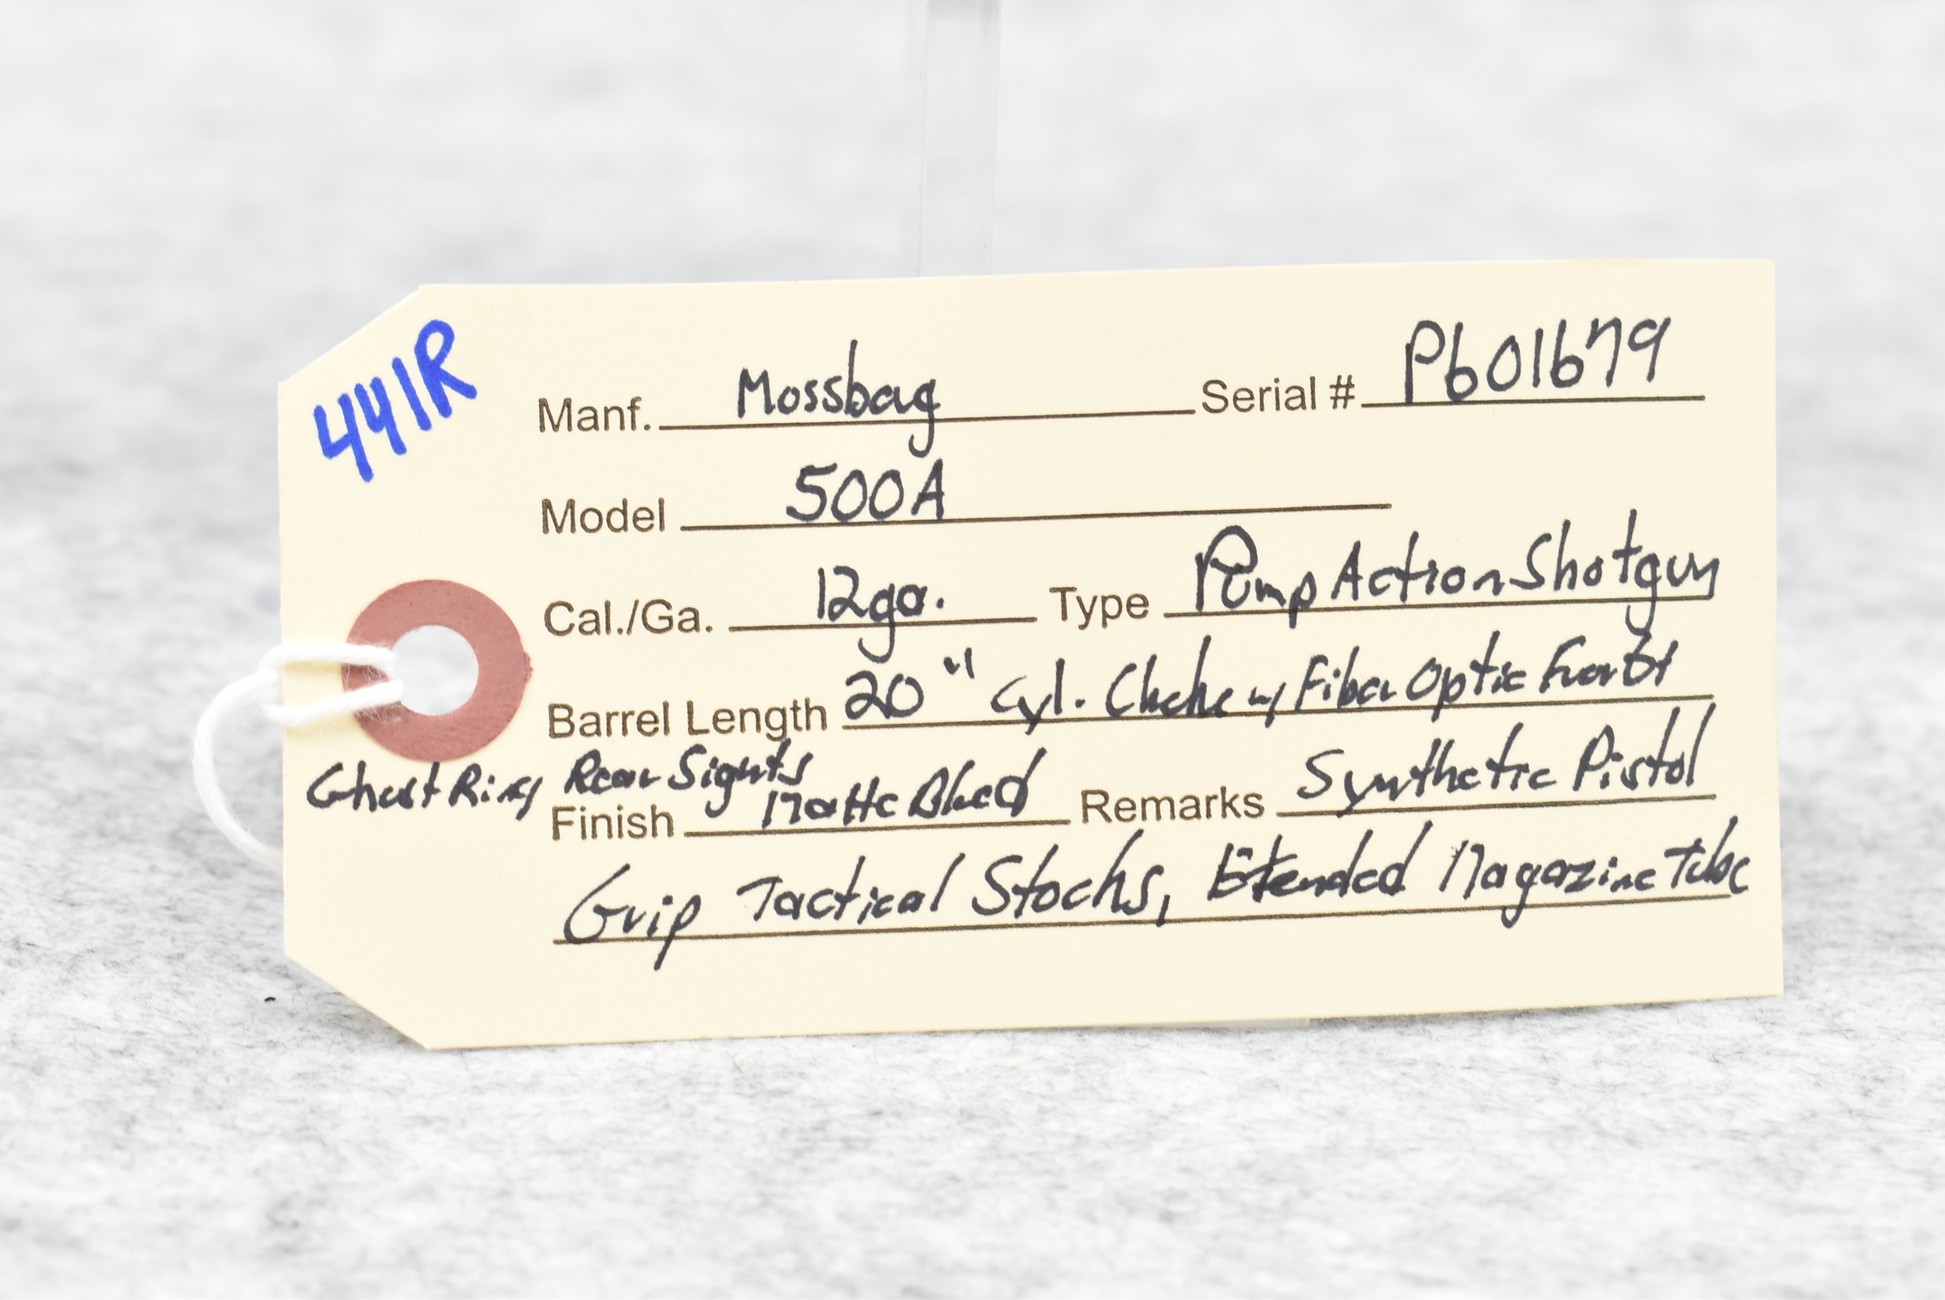 441R
Manf. Mossbag Serial # P601679
Model 500A
Cal./Ga. 12ga. Type Pump Action Shotgun
Barrel Length 20" Cyl. Choke w/ Fiber Optic Front
Ghost Ring Rear Sights
Finish Matte Blued Remarks Synthetic Pistol
Grip Tactical Stocks, Extended Magazine Tube